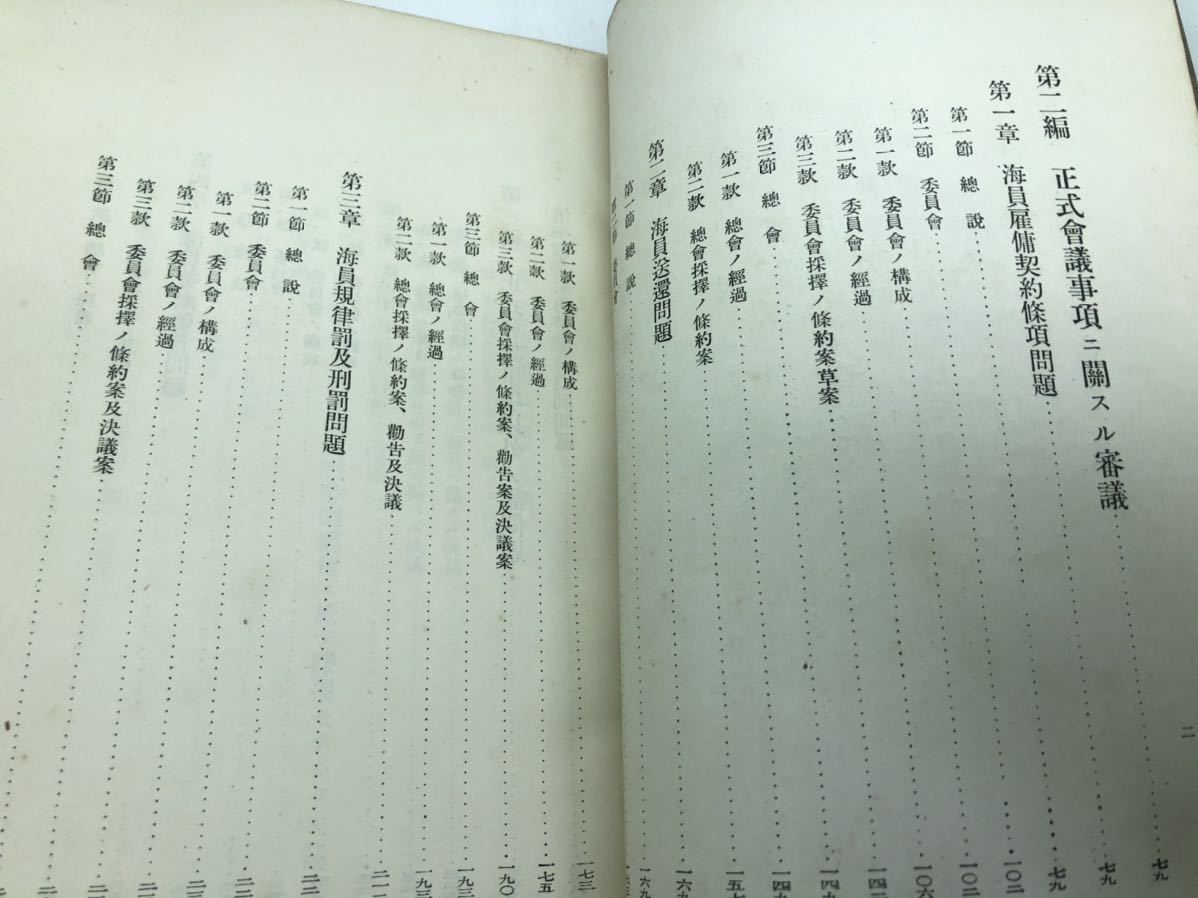 第二編 正式會議事項ニ關スル審議 七九
第一章 海員雇傭契約條項問題 七九
第一節 總說 七九
第二節 委員會 一〇二
第一款 委員會ノ構成 一〇二
第二款 委員會ノ經過 一〇六
第三款 委員會採擇ノ條約案草案 一四二
第三節 總會 一四九
第一款 總會ノ經過 一四九
第二款 總會採擇ノ條約案 一五七
第二章 海員送還問題 一六九
第一節 總說 一六九
第二節 委員會
二
第一款 委員會ノ構成 一七三
第二款 委員會ノ經過 一七五
第三款 委員會採擇ノ條約案、勸告案及決議案 一九〇
第三節 總會 一九三
第一款 總會ノ經過 一九三
第二款 總會採擇ノ條約案、勸告及決議
第三章 海員規律罰及刑罰問題
第一節 總說
第二節 委員會
第一款 委員會ノ構成
第二款 委員會ノ經過
第三款 委員會採擇ノ條約案及決議案
第三節 總會